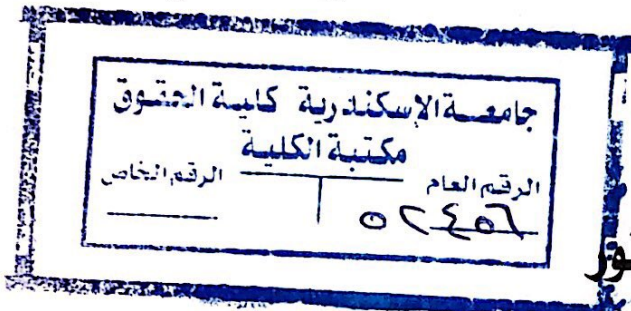 جامعة الإسكندرية كلية الحقوق
مكتبة الكلية
الرقم العام
الرقم الخاص
٥٢٤٥٦